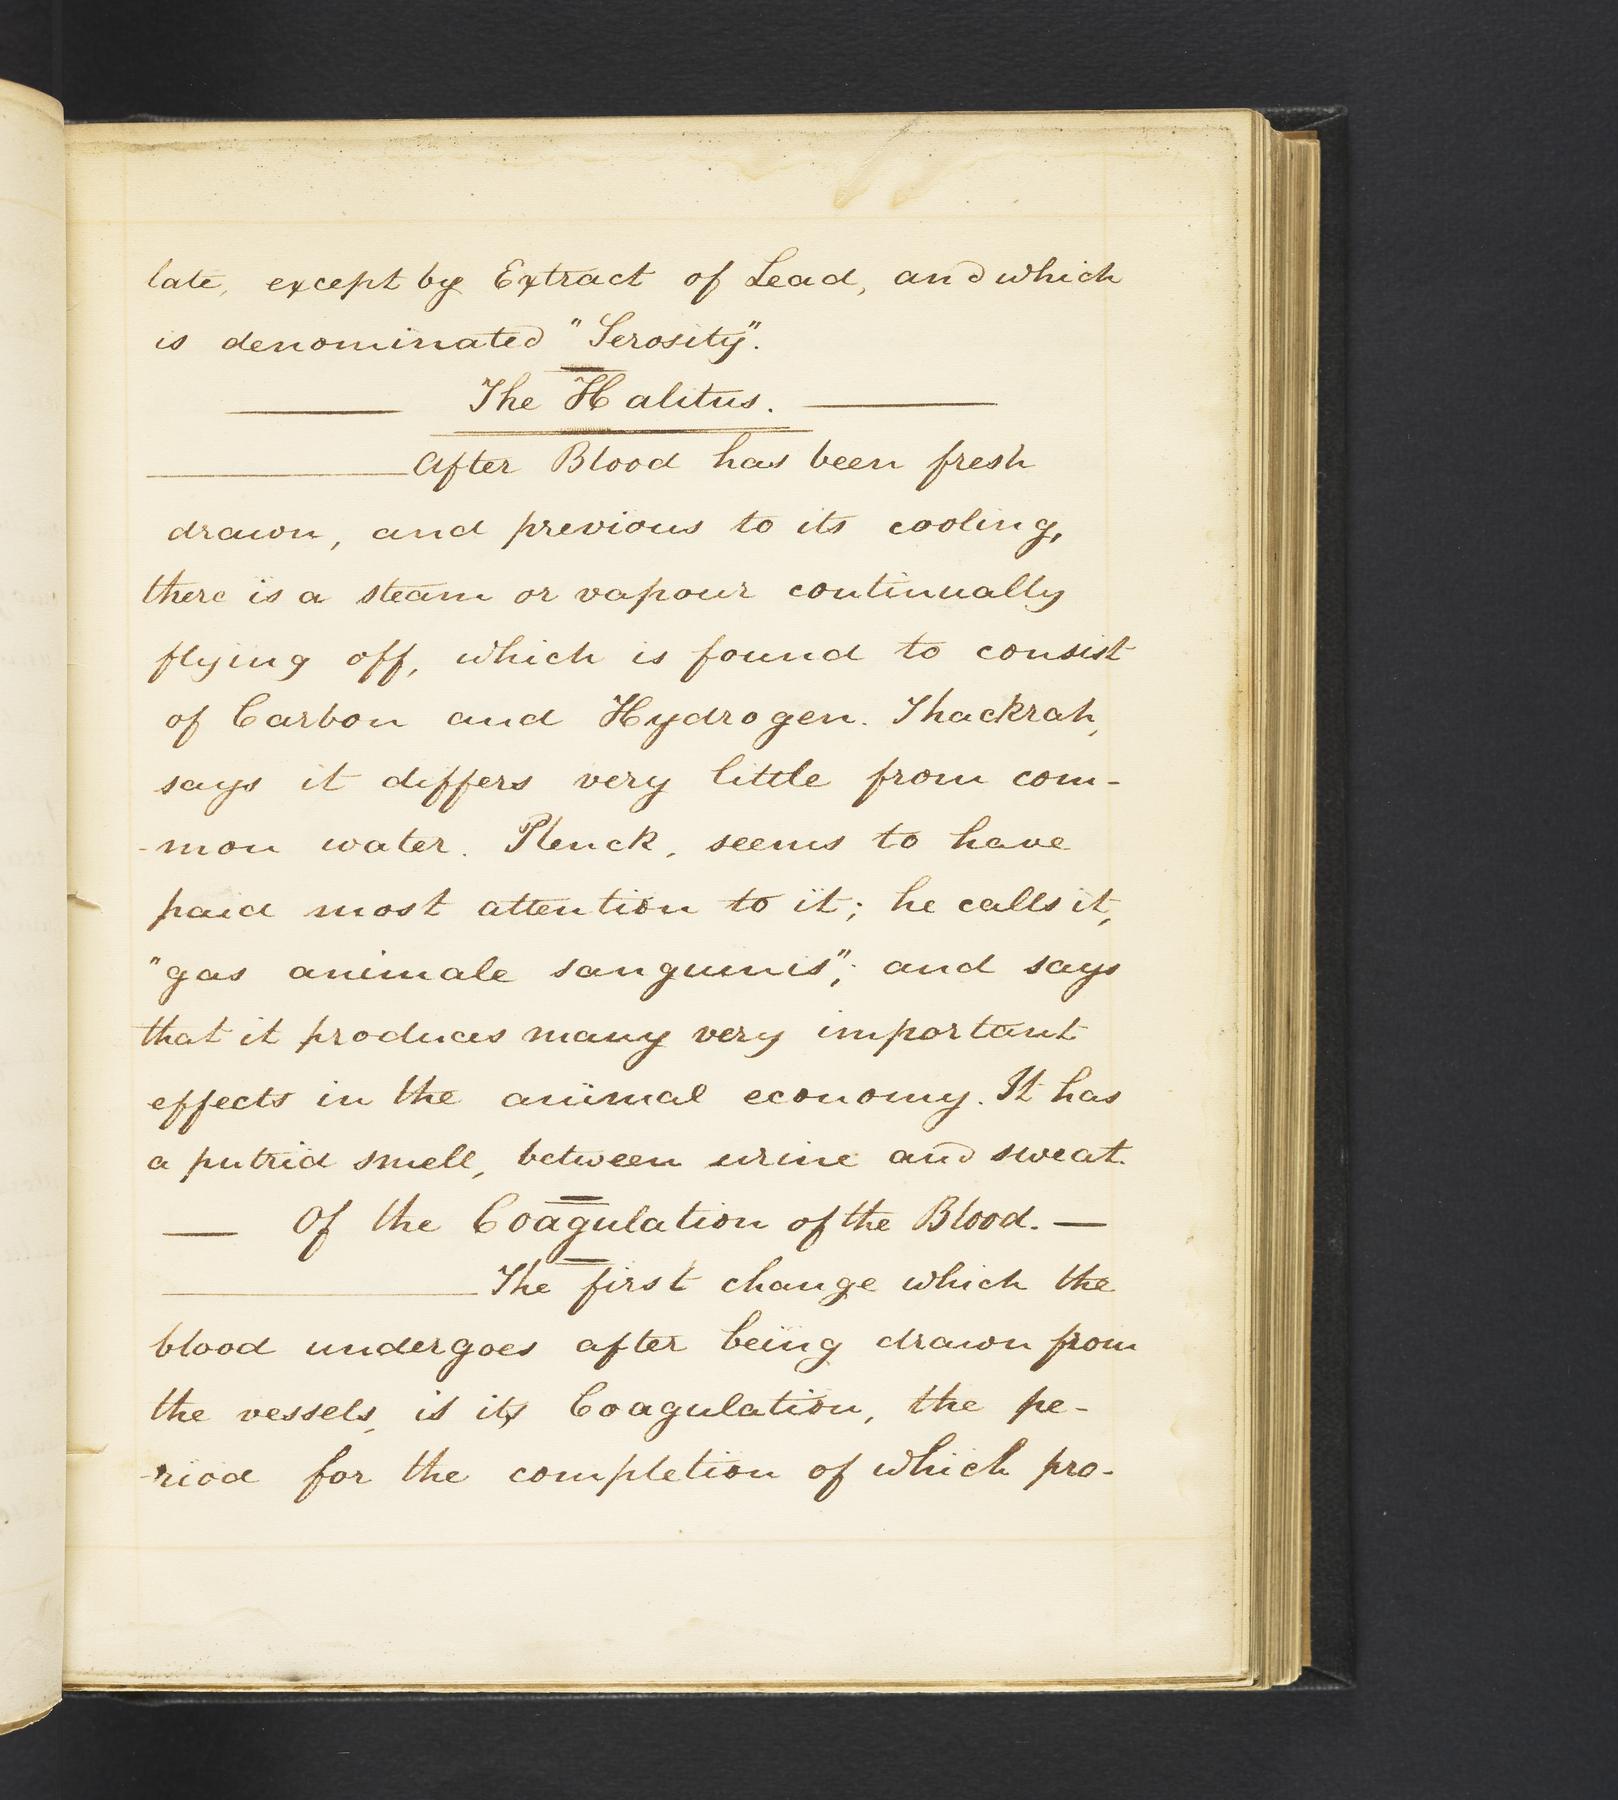 late, except by Extract of Lead, and which
is denominated "Serosity".
The Halitus.
After Blood has been fresh
drawn, and previous to its cooling,
there is a steam or vapour continually
flying off, which is found to consist
of Carbon and Hydrogen. Thackrah,
says it differs very little from com-
-mon water. Plenck, seems to have
paid most attention to it; he calls it,
"gas animale sanguinis"; and says
that it produces many very important
effects in the animal economy. It has
a putrid smell, between urine and sweat.
— Of the Coagulation of the Blood. —
The first change which the
blood undergoes after being drawn from
the vessels, is its Coagulation, the pe-
-riod for the completion of which pro-